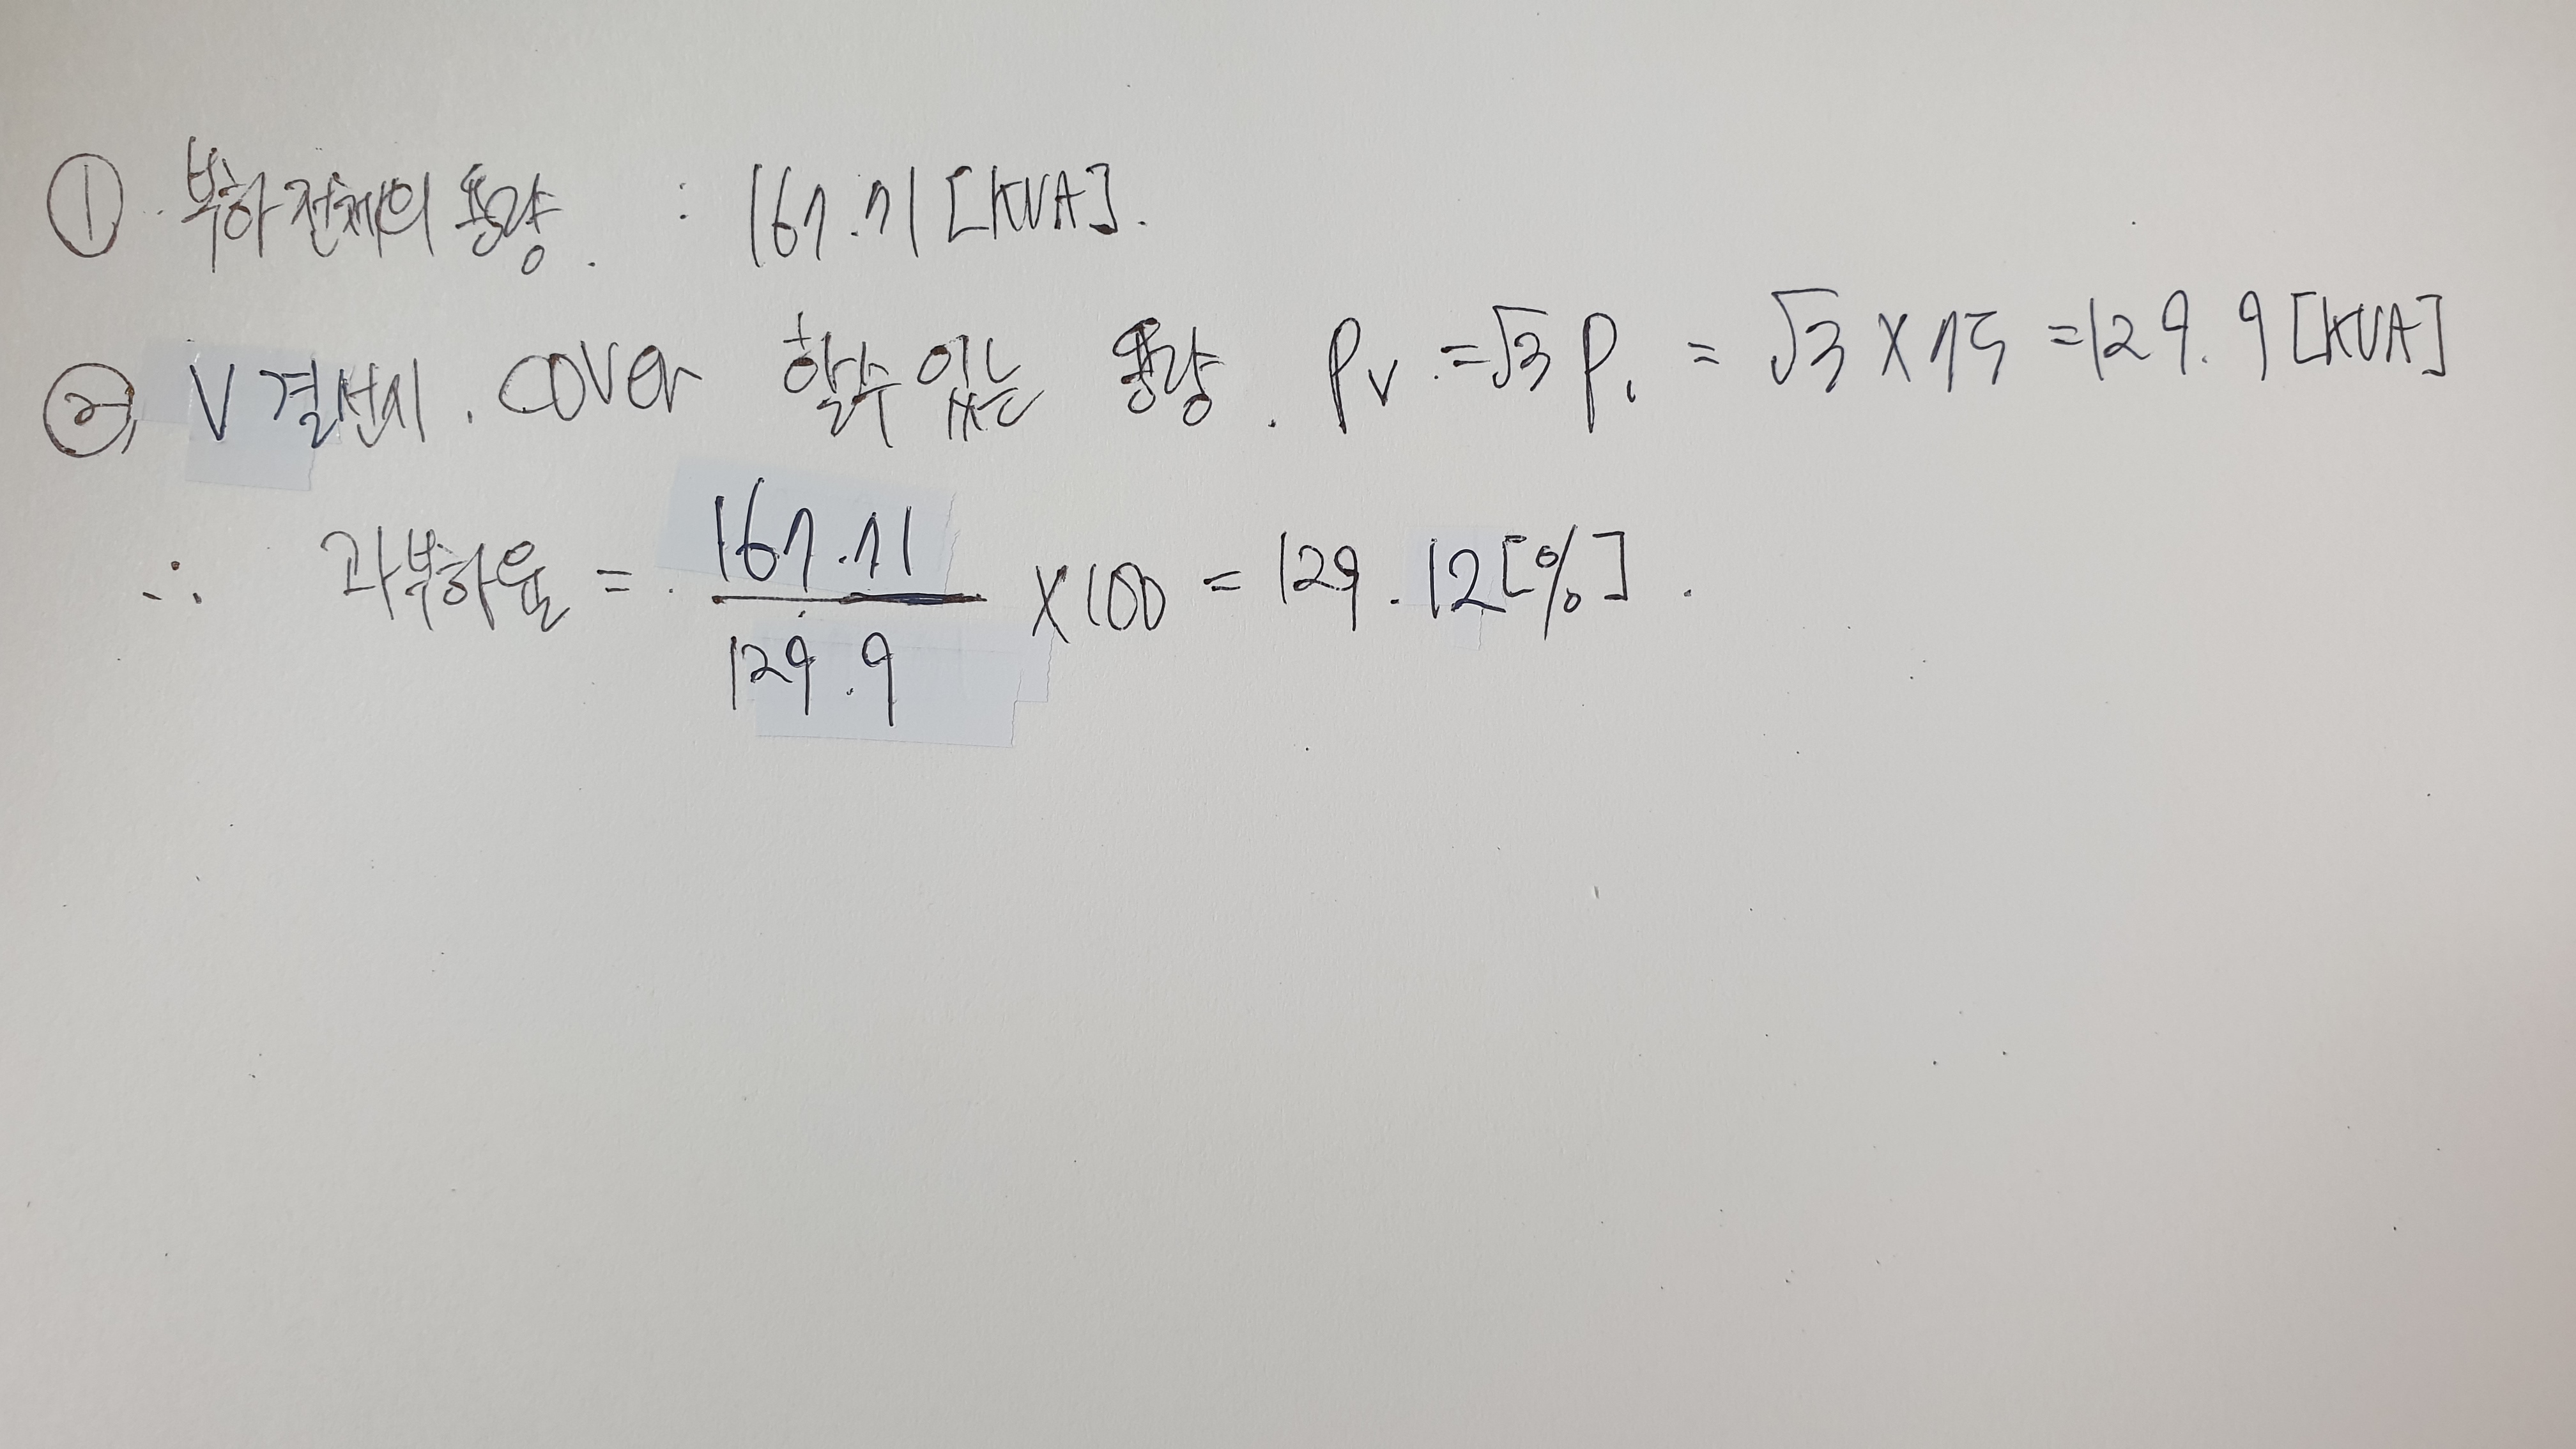 ① 부하 전체의 용량. : 167.71 [KVA].
② V결선시. COVER 할수 있는 용량. PV = √3 P1 = √3 × 75 = 129.9 [KVA]
∴ 과부하율 = 167.71 / 129.9 × 100 = 129.12 [%].